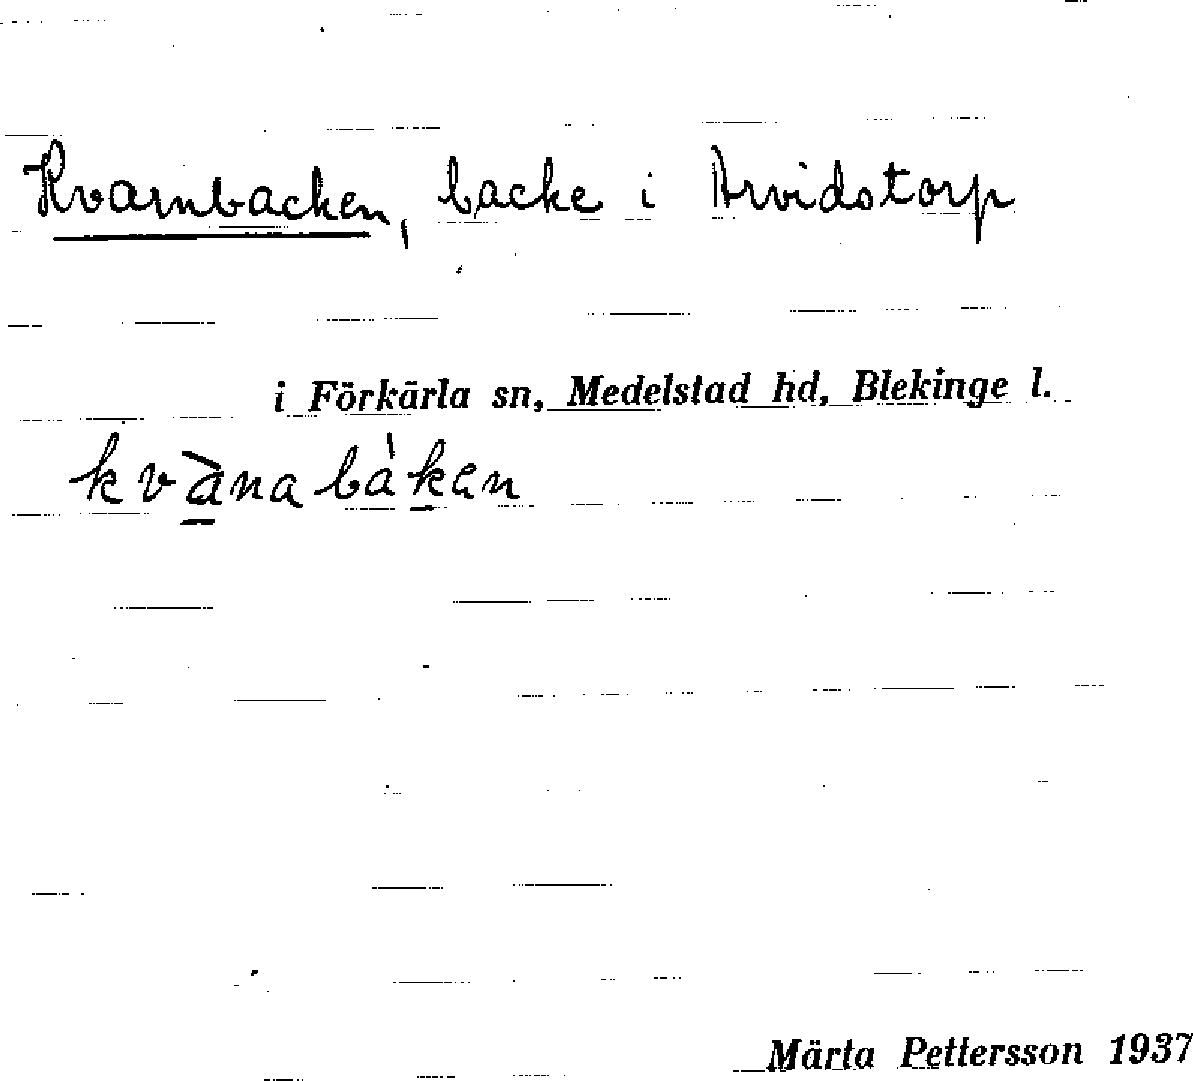 Kvarnbacken, backe i Arvidstorp
i Förkärla sn, Medelstad hd, Blekinge l.
kvànabákan
Märta Pettersson 1937